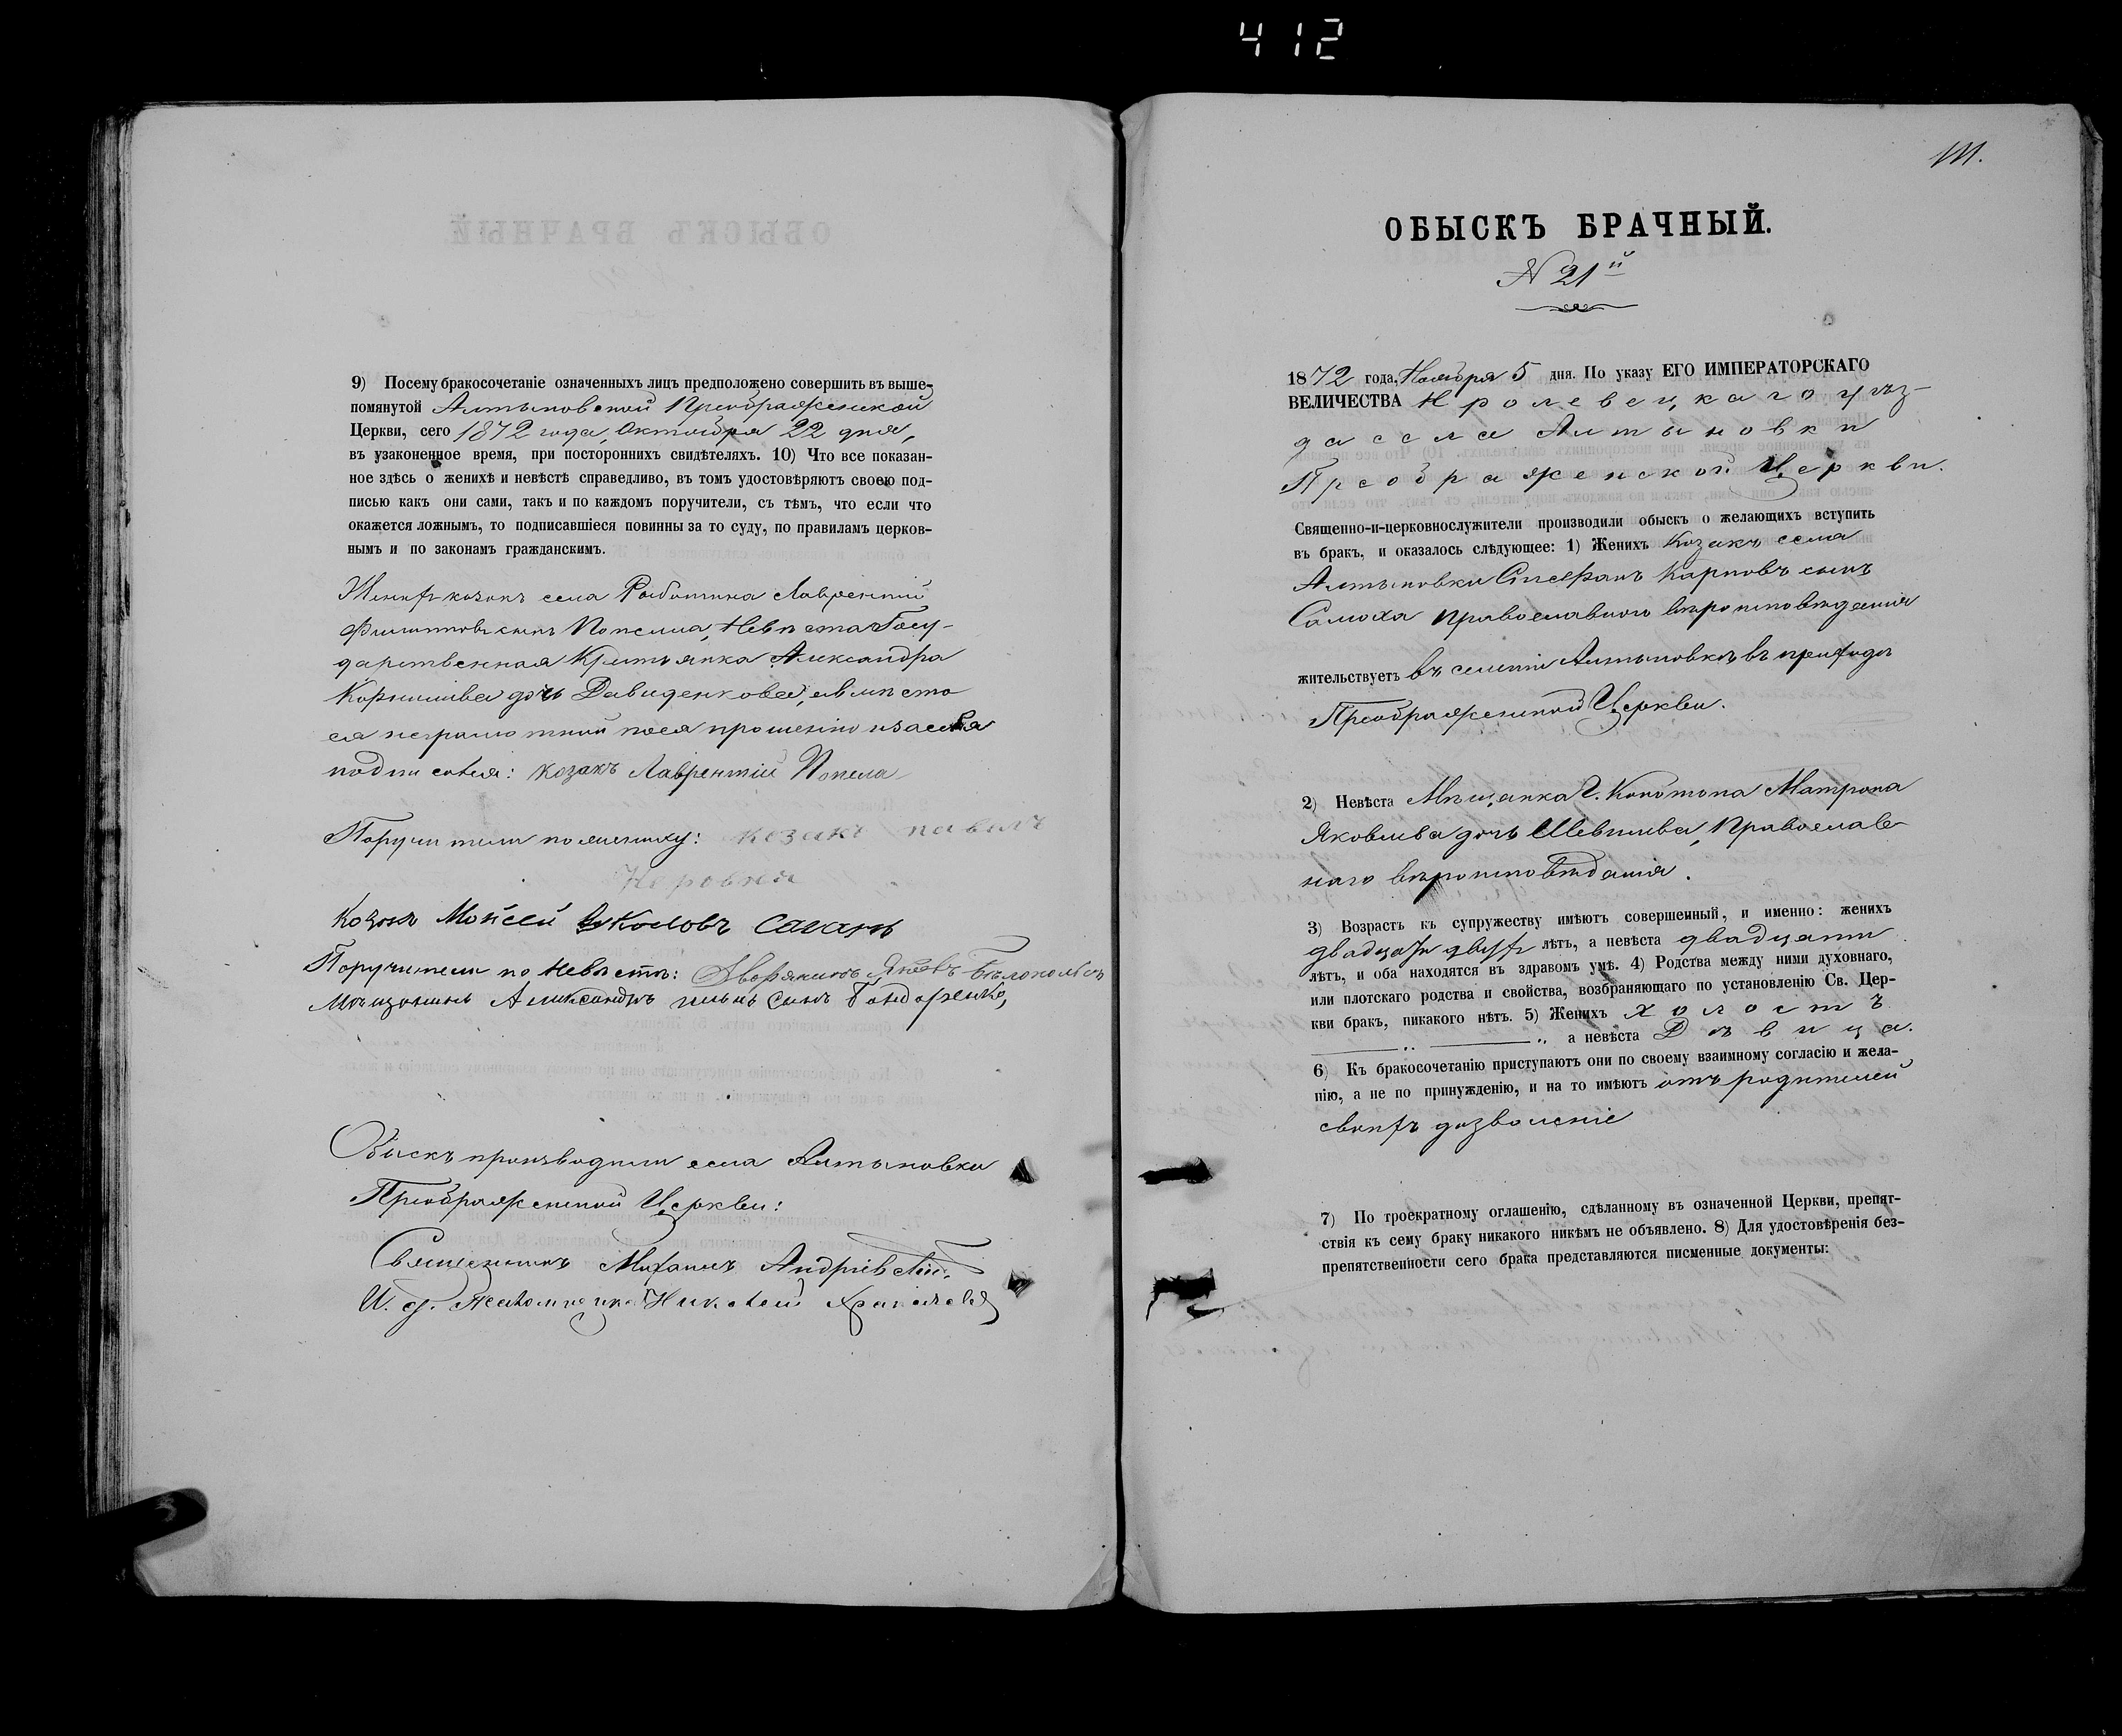 412
9) Посему бракосочетаніе означенныхъ лицъ предположено совершить въ выше-
помянутой Алтыновской Преображенской
Церкви, сего 1872 года, Октября 22 дня,
въ узаконенное время, при постороннихъ свидѣтеляхъ. 10) Что все показан-
ное здѣсь о женихѣ и невѣстѣ справедливо, въ томъ удостовѣряютъ своею под-
писью какъ они сами, такъ и по каждомъ поручители, съ тѣмъ, что если что
окажется ложнымъ, то подписавшіеся повинны за то суду, по правиламъ церков-
нымъ и по законамъ гражданскимъ.
Женихъ козакъ села Лаврентій
сынъ Попела, Невѣста Госу-
дарственная Крестьянка Александра
дочь Давиденкова, а вмѣсто
ея неграмотной по ея прошенію и за себя
подписался: козакъ Лаврентій Попела
Поручители по жениху: козакъ павелъ
Козакъ Мойсей
Поручители по Невѣстѣ: Дворянинъ
Мѣщанинъ Александръ сынъ Бондаренко,
Обыскъ производили села Алтыновки
Преображенской Церкви:
Священникъ Михаилъ Андріевскій
И. д. Псаломщика Николай
111.
ОБЫСКЪ БРАЧНЫЙ.
N 21й
1872 года, Ноября 5 дня. По указу ЕГО ИМПЕРАТОРСКАГО
ВЕЛИЧЕСТВА Кролевецкаго уѣз-
да села Алтыновки
Преображенской Церкви.
Священно-и-церковнослужители производили обыскъ о желающихъ вступить
въ бракъ, и оказалось слѣдующее: 1) Женихъ Козакъ села
Алтыновки Стефанъ Карповъ сынъ
Самоха Православнаго вѣроисповѣданія
жительствуетъ въ селеніи Алтыновкѣ въ приходѣ
Преображенской Церкви.
2) Невѣста Мѣщанка г. Конотопа Матрона
Яковлева дочь Шевцова, Православ-
наго вѣроисповѣданія.
3) Возрастъ къ супружеству имѣютъ совершенный, и именно: женихъ
двадцати двухъ лѣтъ, а невѣста двадцати
лѣтъ, и оба находятся въ здравомъ умѣ. 4) Родства между ними духовнаго,
или плотскаго родства и свойства, возбраняющаго по установленію Св. Цер-
кви бракъ, никакого нѣтъ. 5) Женихъ холостъ
а невѣста Дѣвица.
6) Къ бракосочетанію приступаютъ они по своему взаимному согласію и жела-
нію, а не по принужденію, и на то имѣютъ отъ родителей
своихъ дозволеніе
7) По троекратному оглашенію, сдѣланному въ означенной Церкви, препят-
ствія къ сему браку никакого никѣмъ не объявлено. 8) Для удостовѣренія без-
препятственности сего брака представляются писменные документы: